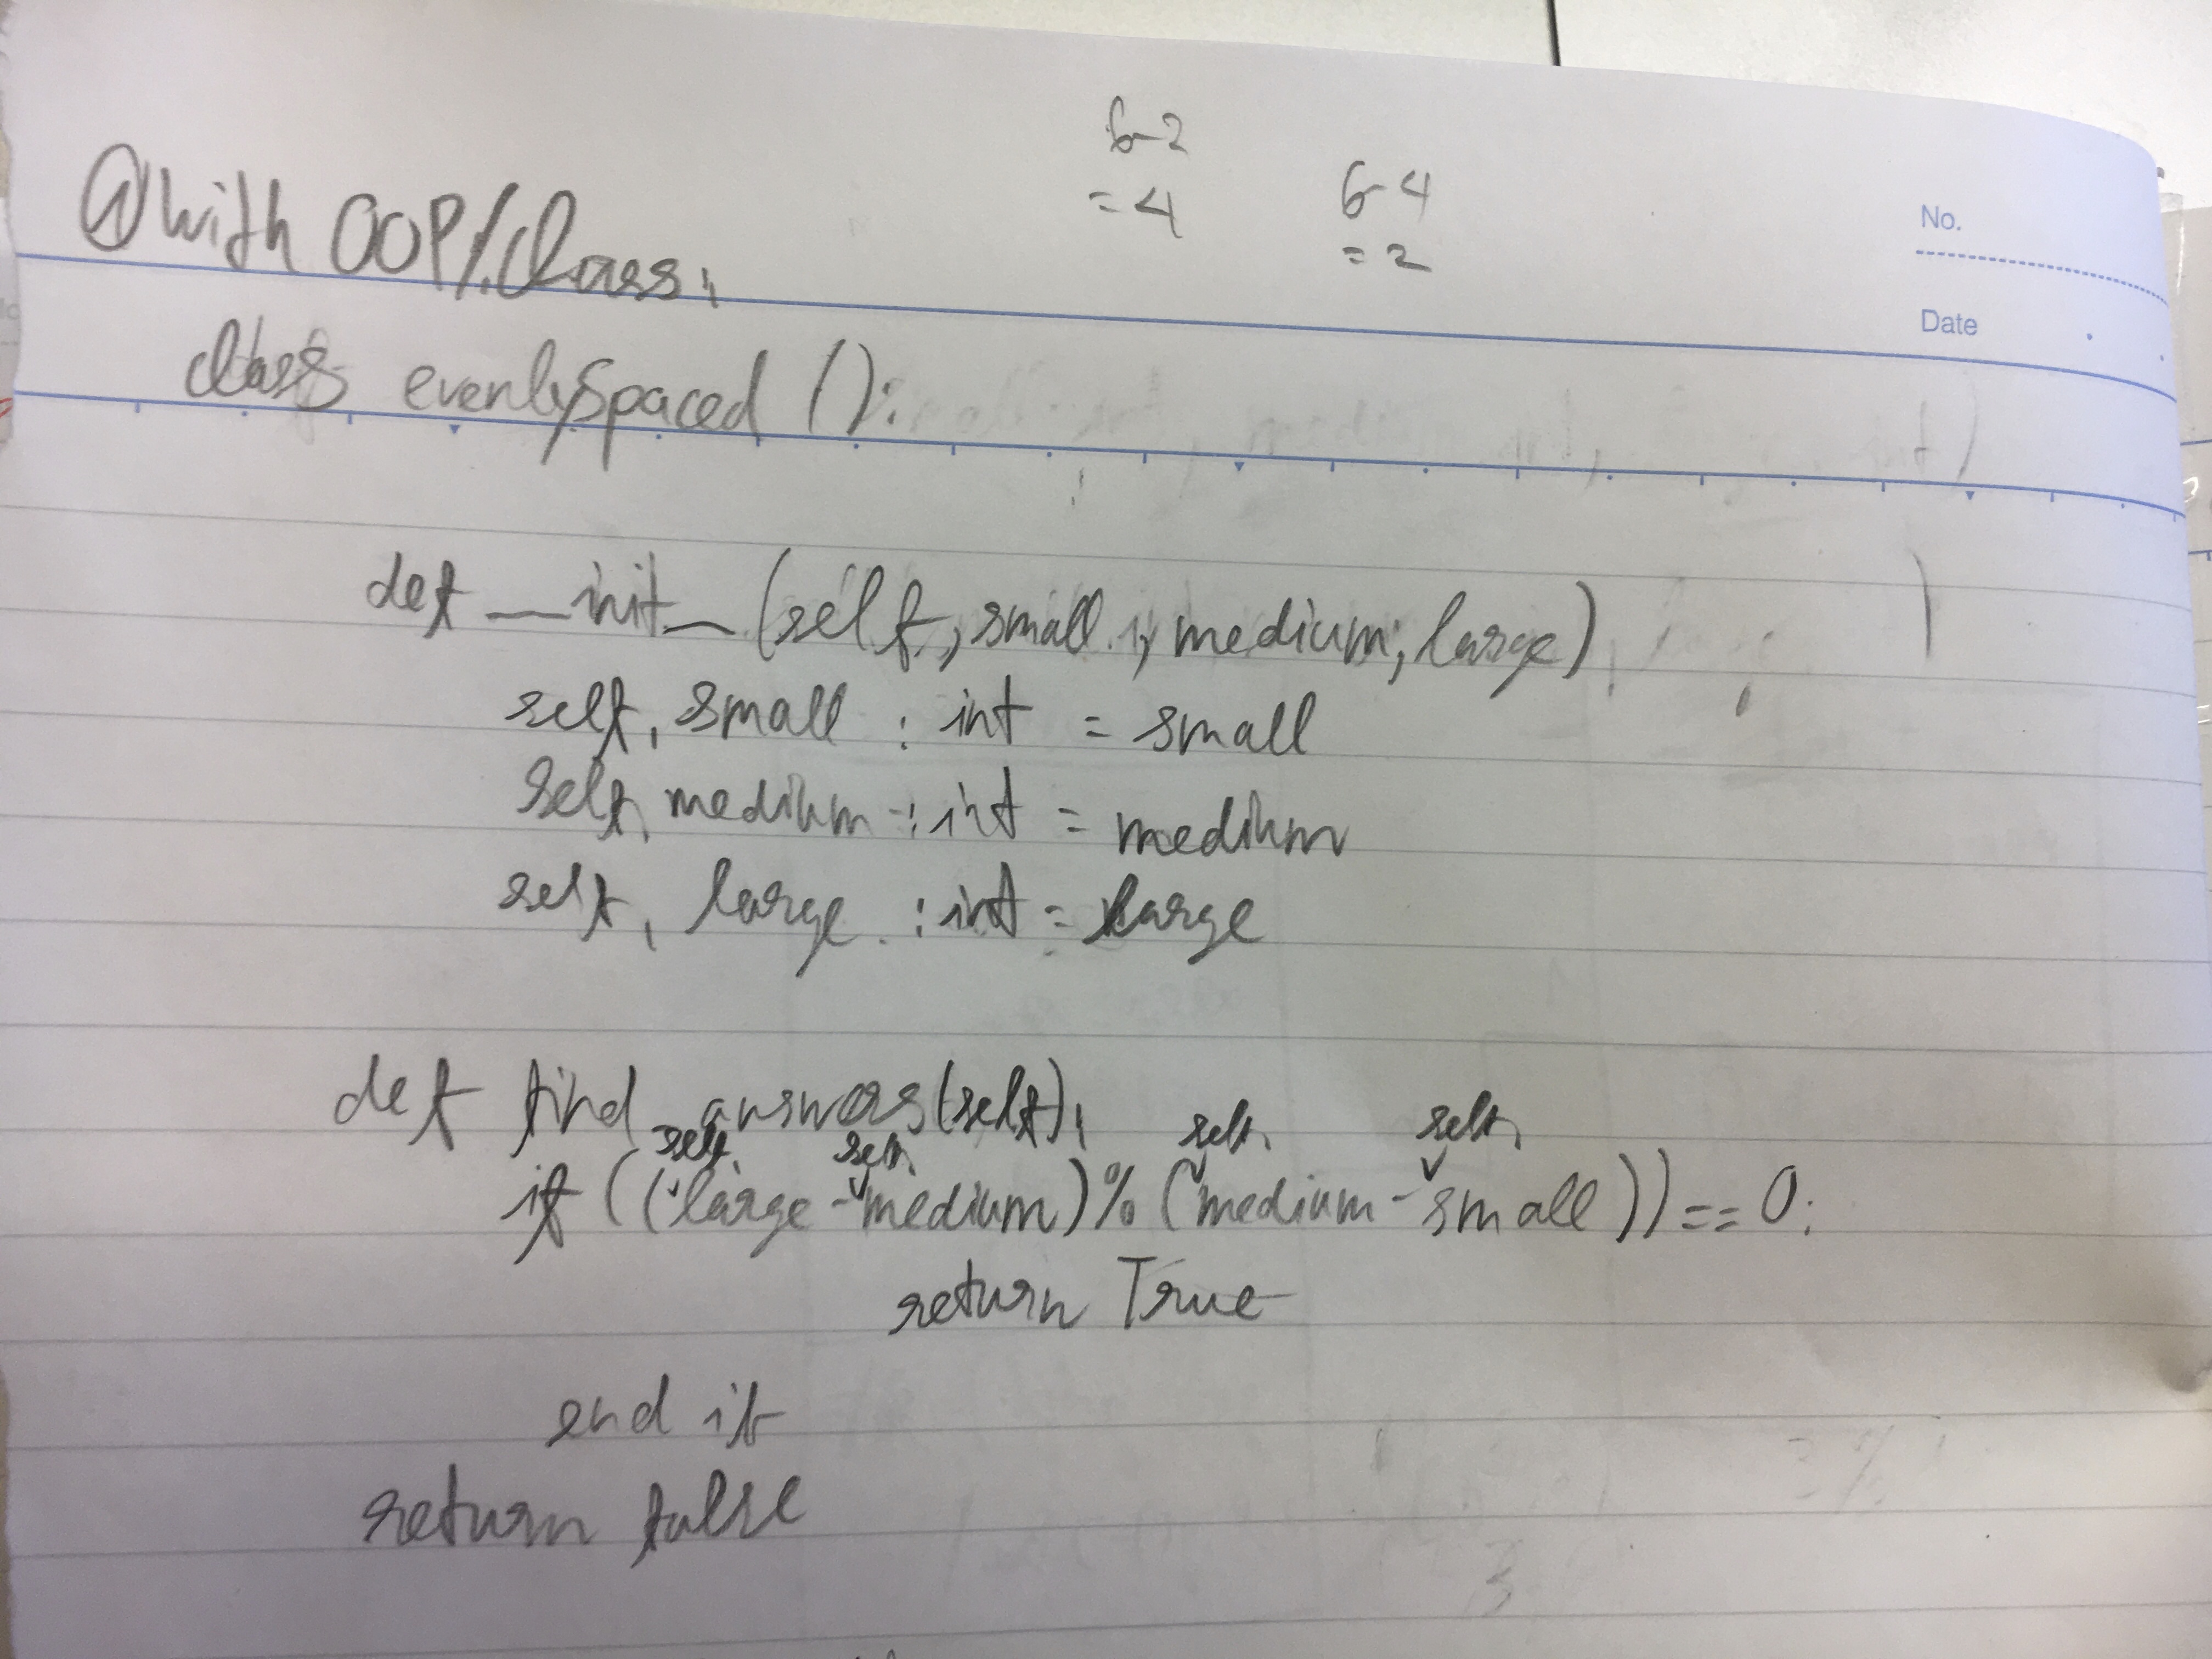 6-2
= 4
6-4
= 2
No.
Date
① with OOP/class.
class evenlySpaced ():
def __init__(self, small, medium, large)
self. small : int = small
self. medium : int = medium
self. large : int = large
def find_answers(self),
self. self. self. self.
if ((large - medium) % (medium - small)) == 0:
return True
end if
return false